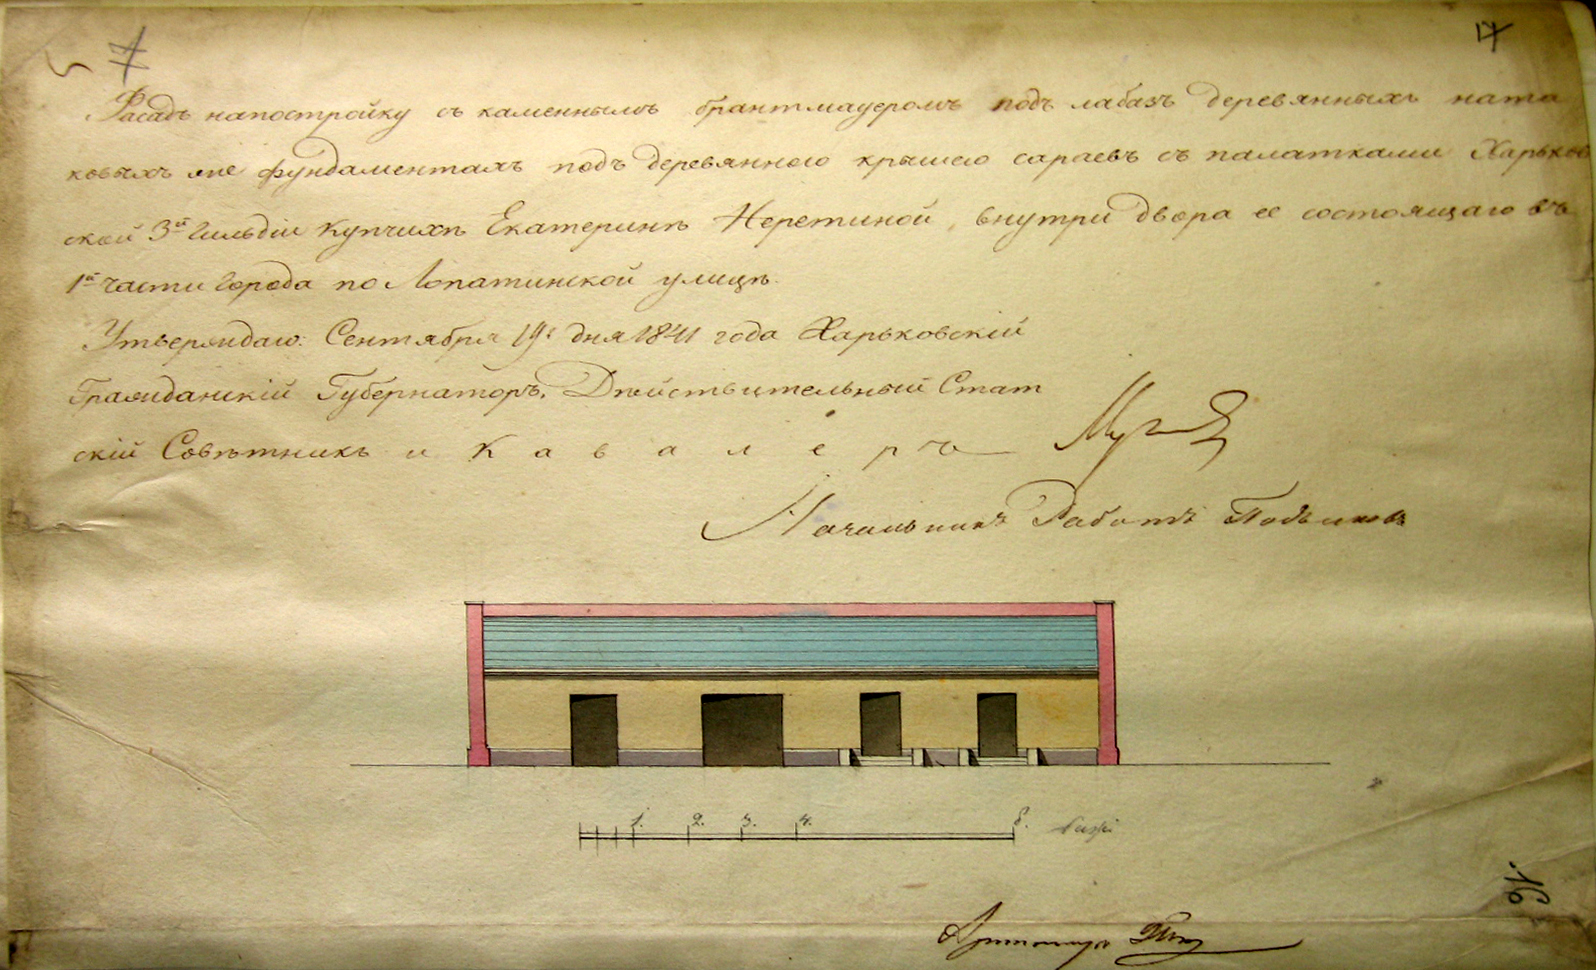 Фасадъ напостройку съ каменнымъ брантмауеромъ подъ лабазъ деревянныхъ ната
ковыхъ же фундаментахъ подъ деревянною крышею сараевъ съ палатками Харьков
ской 3й Гильдіи Купчихѣ Екатеринѣ Неретиной, внутри двора ее состоящаго въ
1й части Города по Лопатинской улицѣ.
Утверждаю: Сентября 19го дня 1841 года Харьковскій
Гражданскій Губернаторъ, Дѣйствительный Стат
скій Совѣтникъ и Кавалеръ
Начальникъ Работъ
1. 2. 3. 4. 8. Саж:
Архитекторъ